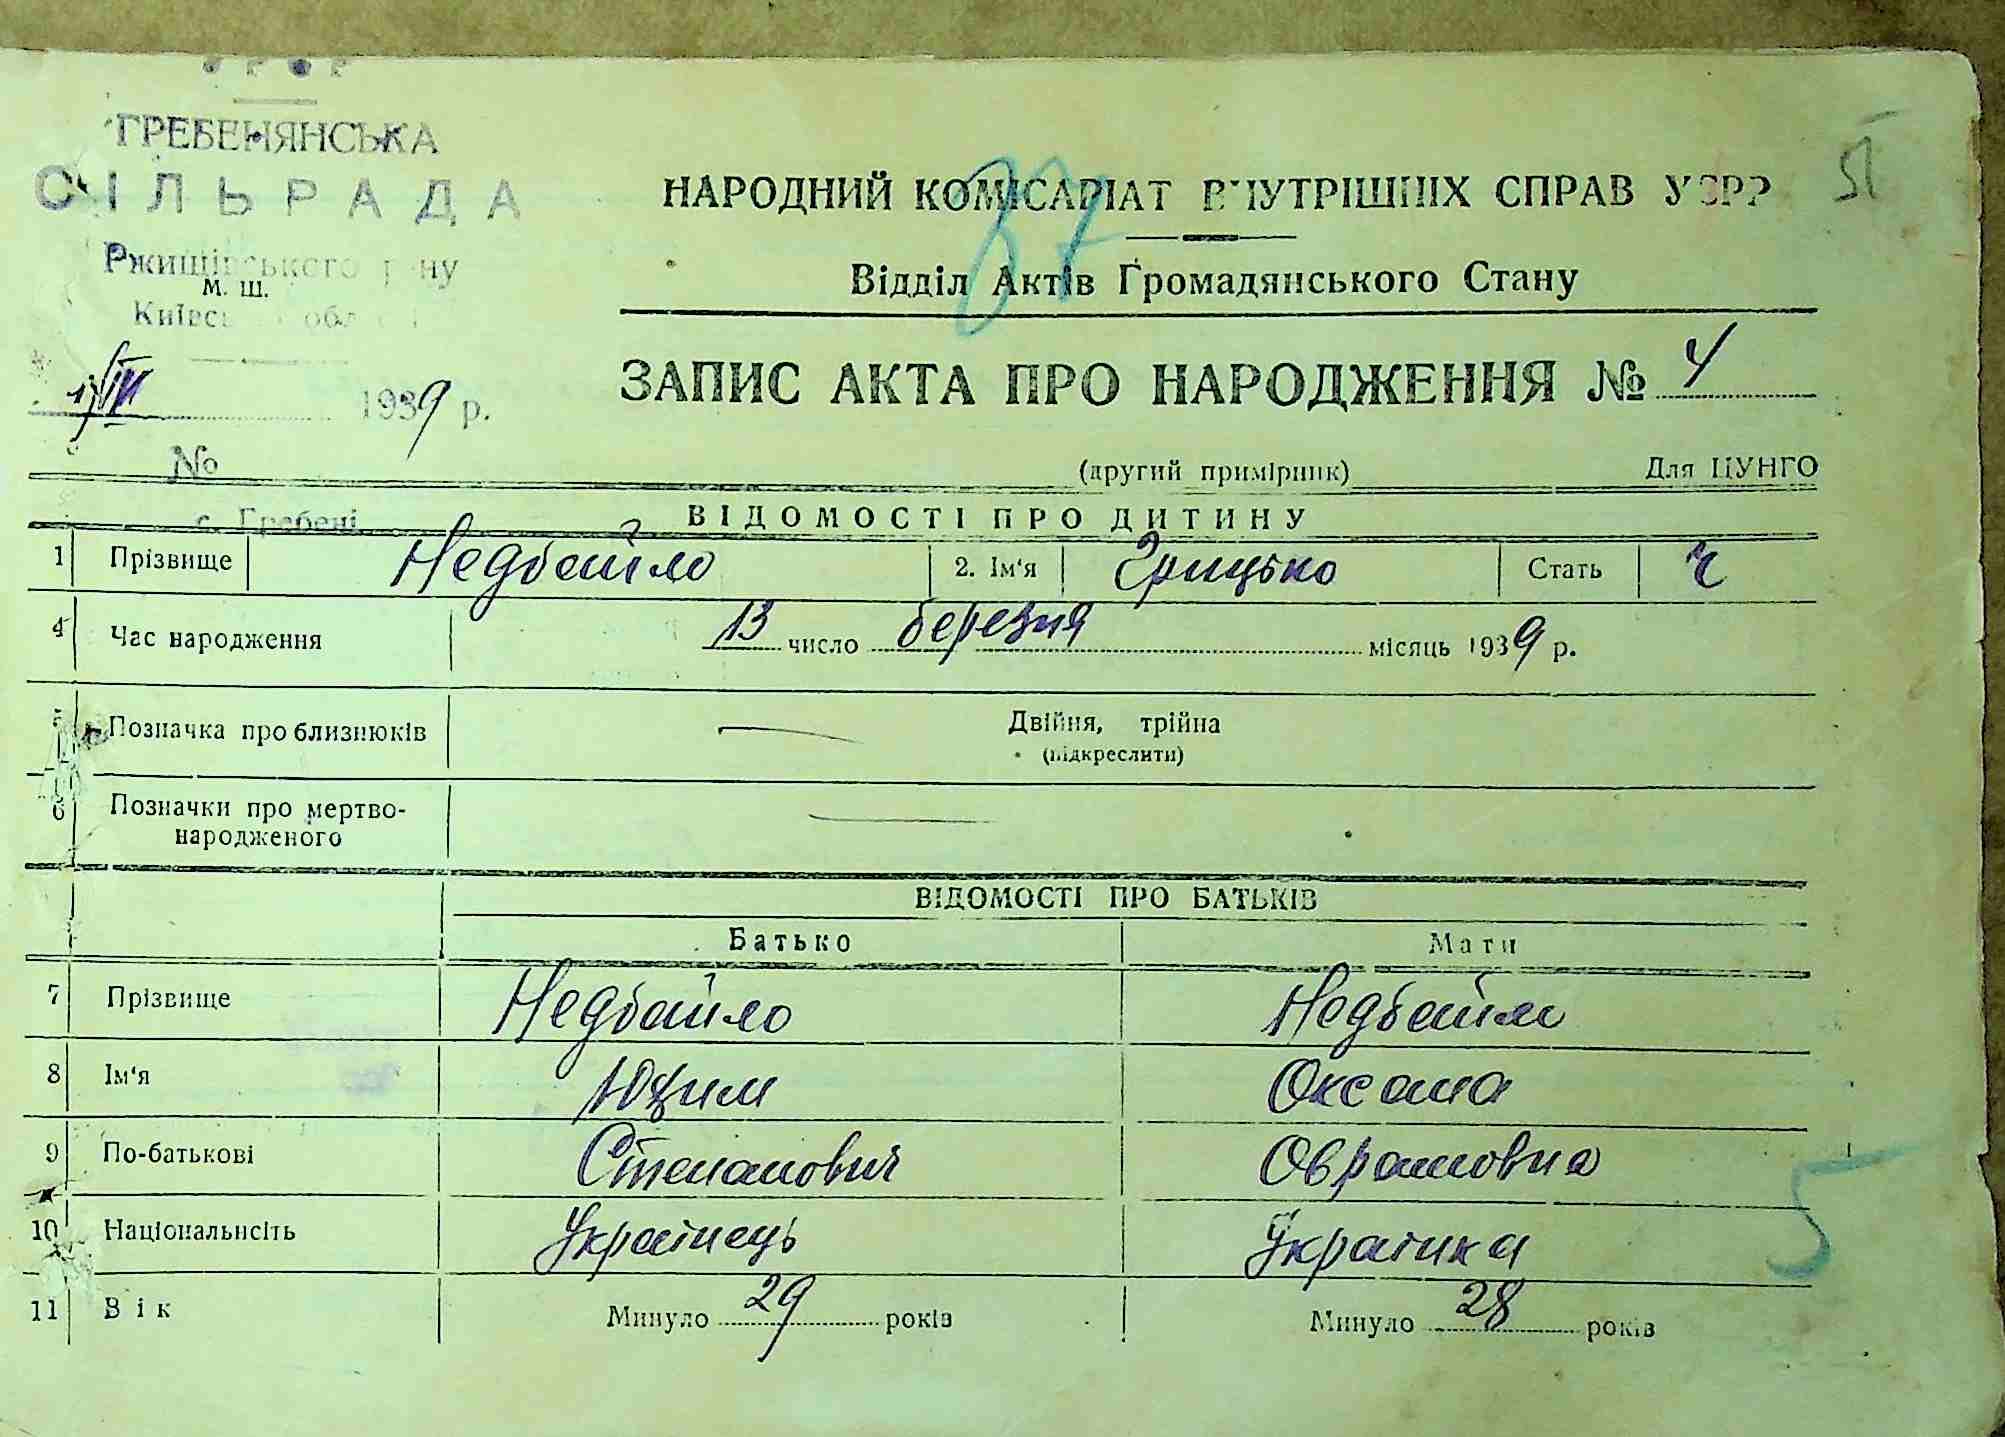 УРСР
ГРЕБЕНЯНСЬКА
СІЛЬРАДА
Ржищівського р-ну
М. Ш.
Київської області
1939 р.
№
с. Гребені
37
51
НАРОДНИЙ КОМІСАРІАТ ВНУТРІШНІХ СПРАВ УСРР
Відділ Актів Громадянського Стану
ЗАПИС АКТА ПРО НАРОДЖЕННЯ № 4
(другий примірник) Для ЦУНГО
ВІДОМОСТІ ПРО ДИТИНУ
1 Прізвище Недбайло 2. Ім'я Грицько Стать ч
4 Час народження 13 число березня місяць 1939 р.
5 Позначка про близнюків — Двійня, трійна
(підкреслити)
6 Позначки про мертво-
народженого —
ВІДОМОСТІ ПРО БАТЬКІВ
Батько Мати
7 Прізвище Недбайло Недбайло
8 Ім'я Юхим Оксана
9 По-батькові Степанович Оврамовна
10 Національність Українець Українка
11 Вік Минуло 29 років Минуло 28 років
5